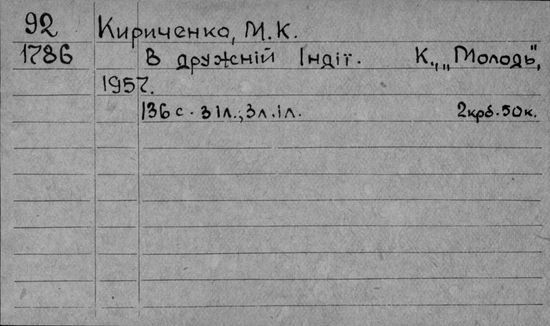 92 Кириченко, М.К.
1786 В дружній Індії. К., „Молодь",
1957.
136 с. з іл.; 3 л. іл. 2 крб. 50 к.